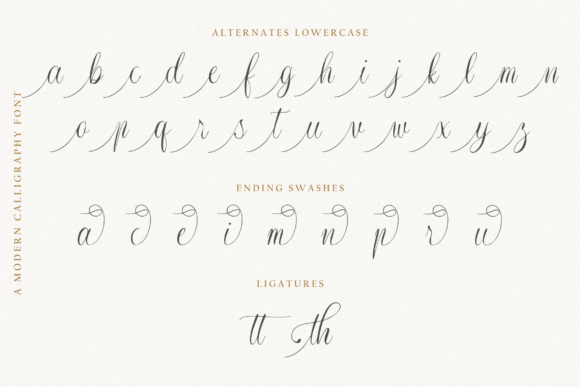 ALTERNATES LOWERCASE
a b c d e f g h i j k l m n
o p q r s t u v w x y z
ENDING SWASHES
a c e i m n p r u
LIGATURES
tt th
A MODERN CALLIGRAPHY FONT